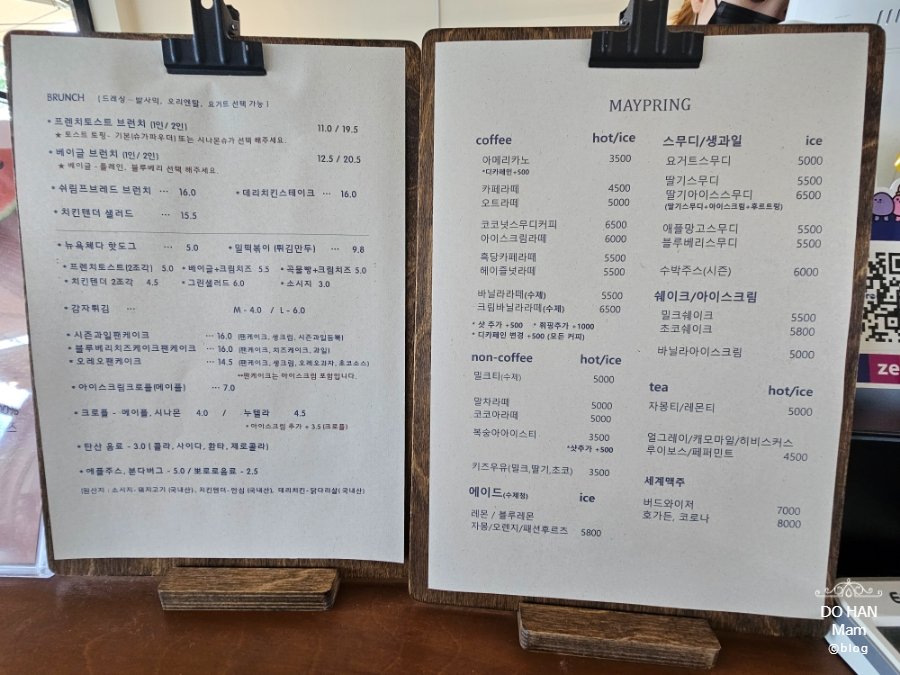 BRUNCH (드레싱 - 발사믹, 오리엔탈, 요거트 선택 가능)
• 프렌치토스트 브런치 (1인/ 2인) 11.0 / 19.5
★ 토스트 토핑- 기본(슈가파우더) 또는 시나몬슈가 선택 해주세요.
• 베이글 브런치 (1인/ 2인) 12.5 / 20.5
★ 베이글 - 플레인, 블루베리 선택 해주세요.
• 쉬림프브레드 브런치 ··· 16.0 • 데리치킨스테이크 ··· 16.0
• 치킨텐더 샐러드 ··· 15.5
• 뉴욕체다 핫도그 ··· 5.0 • 밀떡볶이 (튀김만두) ··· 9.8
• 프렌치토스트(2조각) 5.0 • 베이글+크림치즈 5.5 • 곡물빵+크림치즈 5.0
• 치킨텐더 2조각 4.5 • 그린샐러드 6.0 • 소시지 3.0
• 감자튀김 ··· M - 4.0 / L - 6.0
• 시즌과일팬케이크 ··· 16.0 (팬케이크, 생크림, 시즌과일듬뿍)
• 블루베리치즈케이크팬케이크 ··· 16.0 (팬케이크, 치즈케이크, 과일)
• 오레오팬케이크 ··· 14.5 (팬케이크, 생크림, 오레오과자, 초코소스)
**팬케이크는 아이스크림 포함입니다.
• 아이스크림크로플(메이플) ··· 7.0
• 크로플 - 메이플, 시나몬 4.0 / 누텔라 4.5
• 아이스크림 추가 + 3.5 (크로플)
• 탄산 음료 - 3.0 ( 콜라, 사이다, 환타, 제로콜라)
• 애플주스, 분다버그 - 5.0 / 뽀로로음료 - 2.5
(원산지 : 소시지- 돼지고기 (국내산), 치킨텐더- 안심 (국내산), 데리치킨- 닭다리살( 국내산)
MAYPRING
coffee hot/ice
아메리카노 3500
*디카페인+500
카페라떼 4500
오트라떼 5000
코코넛스무디커피 6500
아이스크림라떼 6000
흑당카페라떼 5500
헤이즐넛라떼 5500
바닐라라떼(수제) 5500
크림바닐라라떼(수제) 6500
* 샷 추가 +500 * 휘핑추가 +1000
* 디카페인 변경 +500 (모든 커피)
non-coffee hot/ice
밀크티(수제) 5000
말차라떼 5000
코코아라떼 5000
복숭아아이스티 3500
*샷추가 +500
키즈우유(밀크,딸기,초코) 3500
에이드(수제청) ice
레몬 / 블루레몬
자몽/오렌지/패션후르츠 5800
스무디/생과일 ice
요거트스무디 5000
딸기스무디 5500
딸기아이스스무디 6500
(딸기스무디+아이스크림+후르트링)
애플망고스무디 5500
블루베리스무디 5500
수박주스(시즌) 6000
쉐이크/아이스크림
밀크쉐이크 5500
초코쉐이크 5800
바닐라아이스크림 5000
tea hot/ice
자몽티/레몬티 5000
얼그레이/캐모마일/히비스커스
루이보스/페퍼민트 4500
세계맥주
버드와이저 7000
호가든, 코로나 8000
ze
DO HAN
Mam
©blog